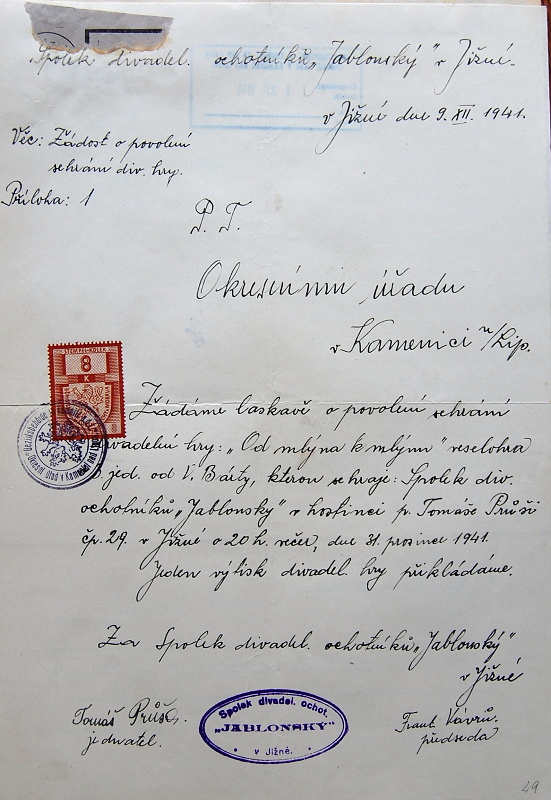 Spolek divadel. ochotníků „Jablonský" v Jižné.
v Jižné dne 9. XII. 1941.
Věc: Žádost o povolení
sehrání div. hry.
Příloha: 1
P. T.
Okresnímu úřadu
v Kamenici n/Lip.
STEMPEL-KOLEK
8
K
Žádáme laskavě o povolení sehrání
divadelní hry: „Od mlýna k mlýnu" veselohra
o jed. od V. Bárty, kterou sehraje: Spolek div.
ochotníků „Jablonský" v hostinci p. Tomáše Průši
čp. 29. v Jižné o 20 h. večer, dne 31. prosince 1941.
Jeden výtisk divadel. hry přikládáme.
Za Spolek divadel. ochotníků „Jablonský"
v Jižné
Tomáš Průša
jednatel.
Spolek divadel. ochot.
„JABLONSKÝ"
v Jižné.
Frant. Vávrů
předseda
49